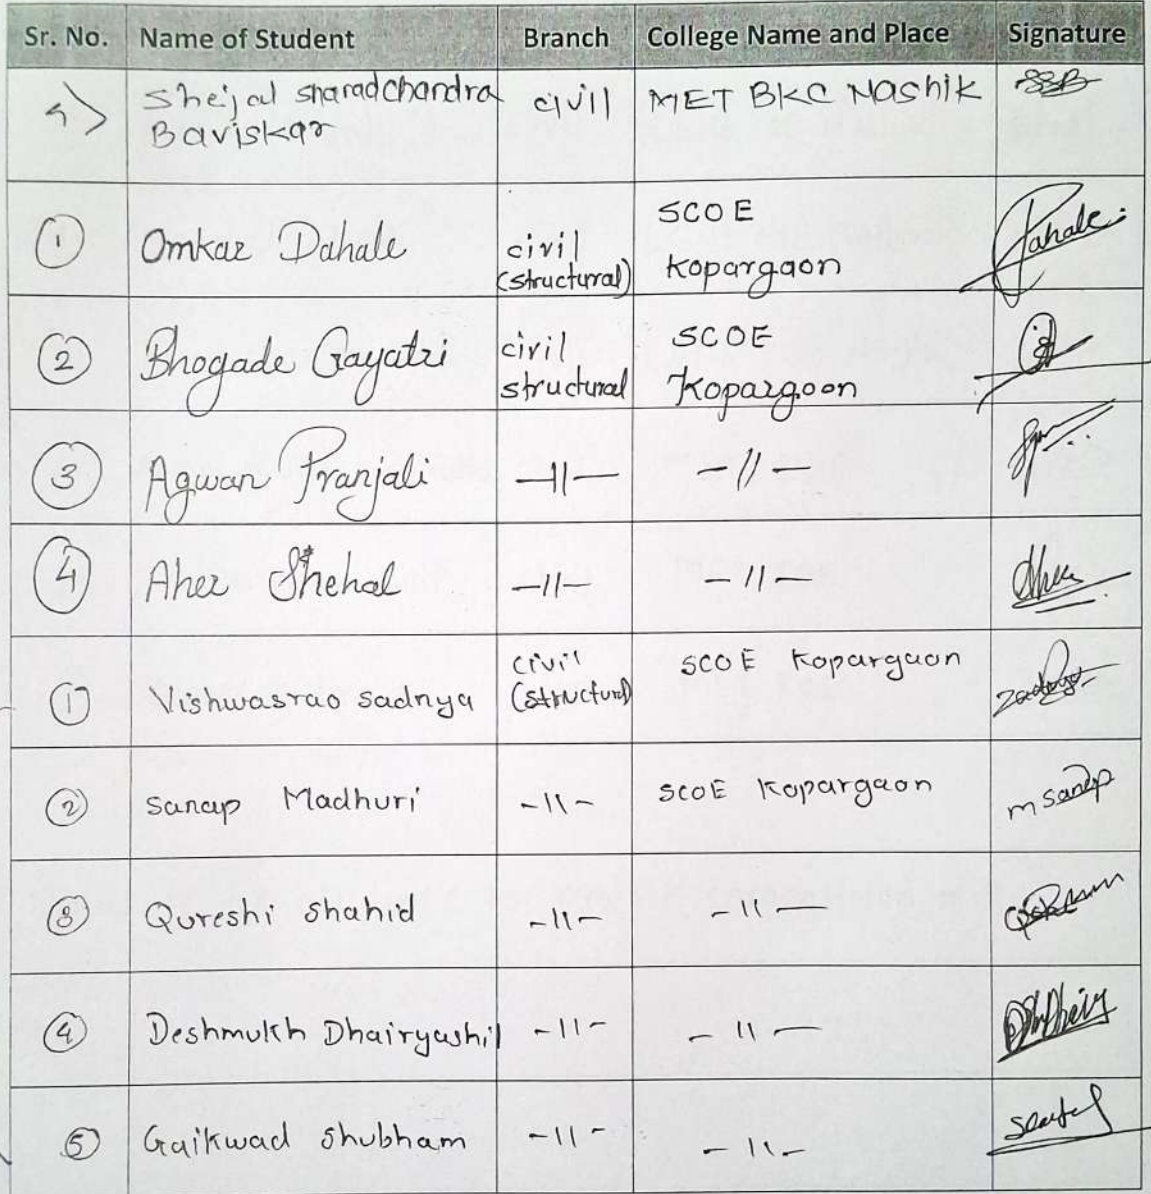 Sr. No. Name of Student Branch College Name and Place Signature
5) Shejal Sharadchandra civil MET BKC Nashik SSB
Baviskar
① Omkar Dahale civil (structural) SCOE Kopargaon Dahale
② Bhogade Gayatri civil structural SCOE Kopargoon
③ Agwan Pranjali -11- -11-
④ Aher Snehal -11- -11- Aher
① Vishwasrao sadnya civil (structural) SCOE Kopargaon
② Sanap Madhuri -11- SCOE Kopargaon m sanap
③ Qureshi shahid -11- -11-
④ Deshmukh Dhairyashil -11- -11-
⑤ Gaikwad Shubham -11- -11-